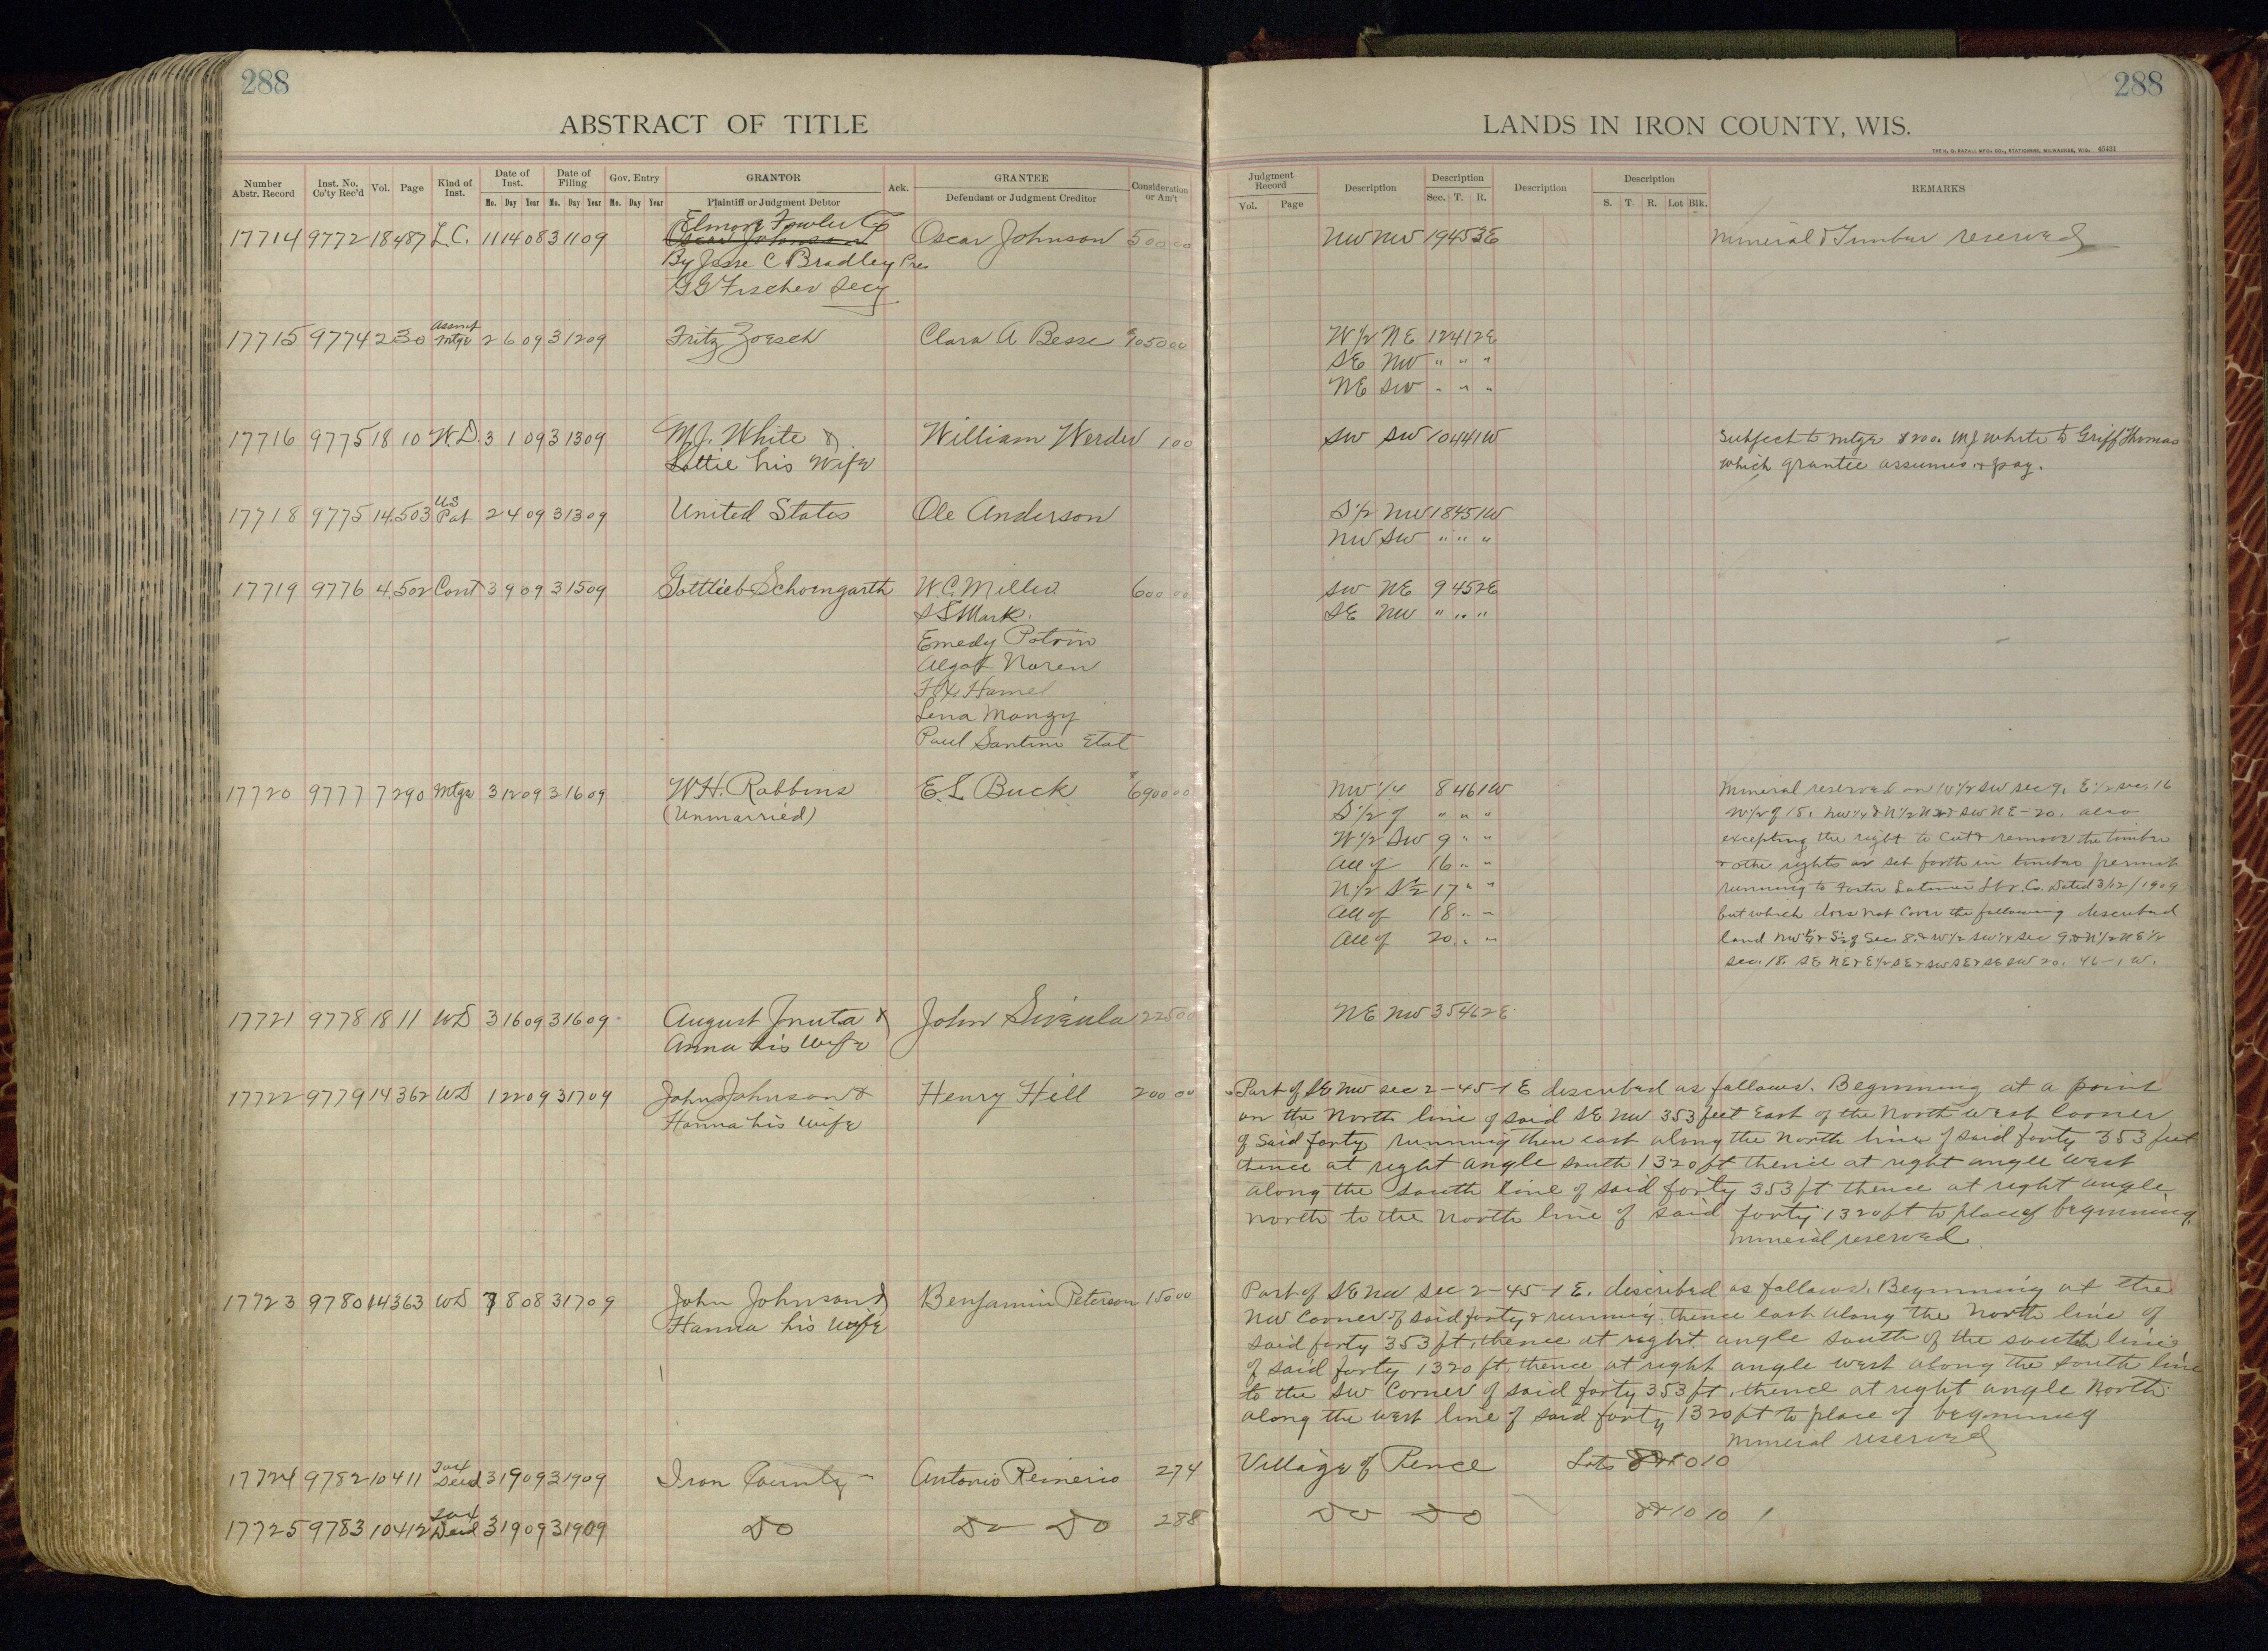 288
288
ABSTRACT OF TITLE
LANDS IN IRON COUNTY, WIS.
THE H. G. RAZALL MFG. CO., STATIONERS, MILWAUKEE, WIS. 45421
Number Abstr. Record Inst. No. Co'ty Rec'd Vol. Page Kind of Inst. Date of Inst. Mo. Day Year Date of Filing Mo. Day Year Gov. Entry Mo. Day Year GRANTOR Plaintiff or Judgment Debtor Ack. GRANTEE Defendant or Judgment Creditor Consideration or Am't
Judgment Record Vol. Page Description Description Sec. T. R. Description Description S. T. R. Lot Blk. REMARKS
17714 9772 18 487 L.C. 11 14 08 3 11 09 Elmore Fowler Co Oscar Johnson 500 00 NW NW 19 45 3E Mineral & Timber reserved
Oscar Johnson
By Jesse C Bradley Pres
G G Fischer Secy
17715 9774 2 30 Assmt Mtge 2 6 09 3 12 09 Fritz Zoesch Clara A Besse 1050 00 W 1/2 NE 12 41 2E
SE NW " " "
NE SW " " "
17716 9775 18 10 W.D. 3 1 09 3 13 09 M.J. White & William Werder 1 00 SW SW 10 44 1W Subject to mtge $200. M J White to Griff Thomas
Lottie his Wife which grantee assumes & pay.
17718 9775 14 503 US Pat 2 4 09 3 13 09 United States Ole Anderson S 1/2 NW 18 45 1W
NW SW " " "
17719 9776 4 502 Cont 3 9 09 3 15 09 Gottlieb Schoengarth W.C. Miller 600 00 SW NE 9 45 2E
S S Mark. SE NW " " "
Emedy Potvin
Algot Noren
Hamel
Lena Mangy
Paul Santini Etal
17720 9777 7 290 Mtge 3 12 09 3 16 09 W.H. Robbins E.L. Buck $6900 00 NW 1/4 8 46 1W Mineral reserved on W 1/2 SW sec 9. E 1/2 sec. 16
(Unmarried) S 1/2 of " " " also
W 1/2 SW 9 " " excepting the right to cut & remove the timber
All of 16 " " & other rights as set forth in timber permit
N 1/2 S 1/2 17 " " running to Foster Latimer Lbr. Co. Dated 3/12/1909
All of 18 " " but which does not cover the following described
All of 20 " " land NW 1/4 & S 1/2 of Sec 8. & W 1/2 SW 1/4 Sec 9
sec. 18. SE NE & E 1/2 SE & SW SE & SE SW 20. 46-1 W.
17721 9778 18 11 WD 3 16 09 3 16 09 August & John 225 00 NE NW 35 46 2E
Anna his Wife
17722 9779 14 362 WD 1 22 09 3 17 09 John Johnson & Henry Hill 200 00 Part of SE NW sec 2-45-1 E described as follows. Beginning at a point
Hanna his wife on the North line of said SE NW 353 feet East of the North West Corner
of said forty running then east along the North line of said forty 353 feet
thence at right angle south 1320 ft thence at right angle west
along the south line of said forty 353 ft thence at right angle
north to the North line of said forty 1320 ft to place of beginning.
Mineral reserved
17723 9780 14 363 WD 7 8 08 3 17 09 John Johnson & Benjamin Peterson 150 00 Part of SE NW sec 2-45-1 E. described as follows. Beginning at the
Hanna his wife NW Corner of said forty & running, thence east along the North line of
said forty 353 ft, thence at right angle south of the south line
of said forty 1320 ft, thence at right angle west along the south line
to the SW Corner of said forty 353 ft, thence at right angle North
along the west line of said forty 1320 ft to place of beginning
Mineral reserved
17724 9782 10 411 Tax Deed 3 19 09 3 19 09 Iron County Antonio Reinerio 2 74 Village of Pence Lots 10
17725 9783 10 412 Tax Deed 3 19 09 3 19 09 Do Do Do 2 88 Do Do 10 10